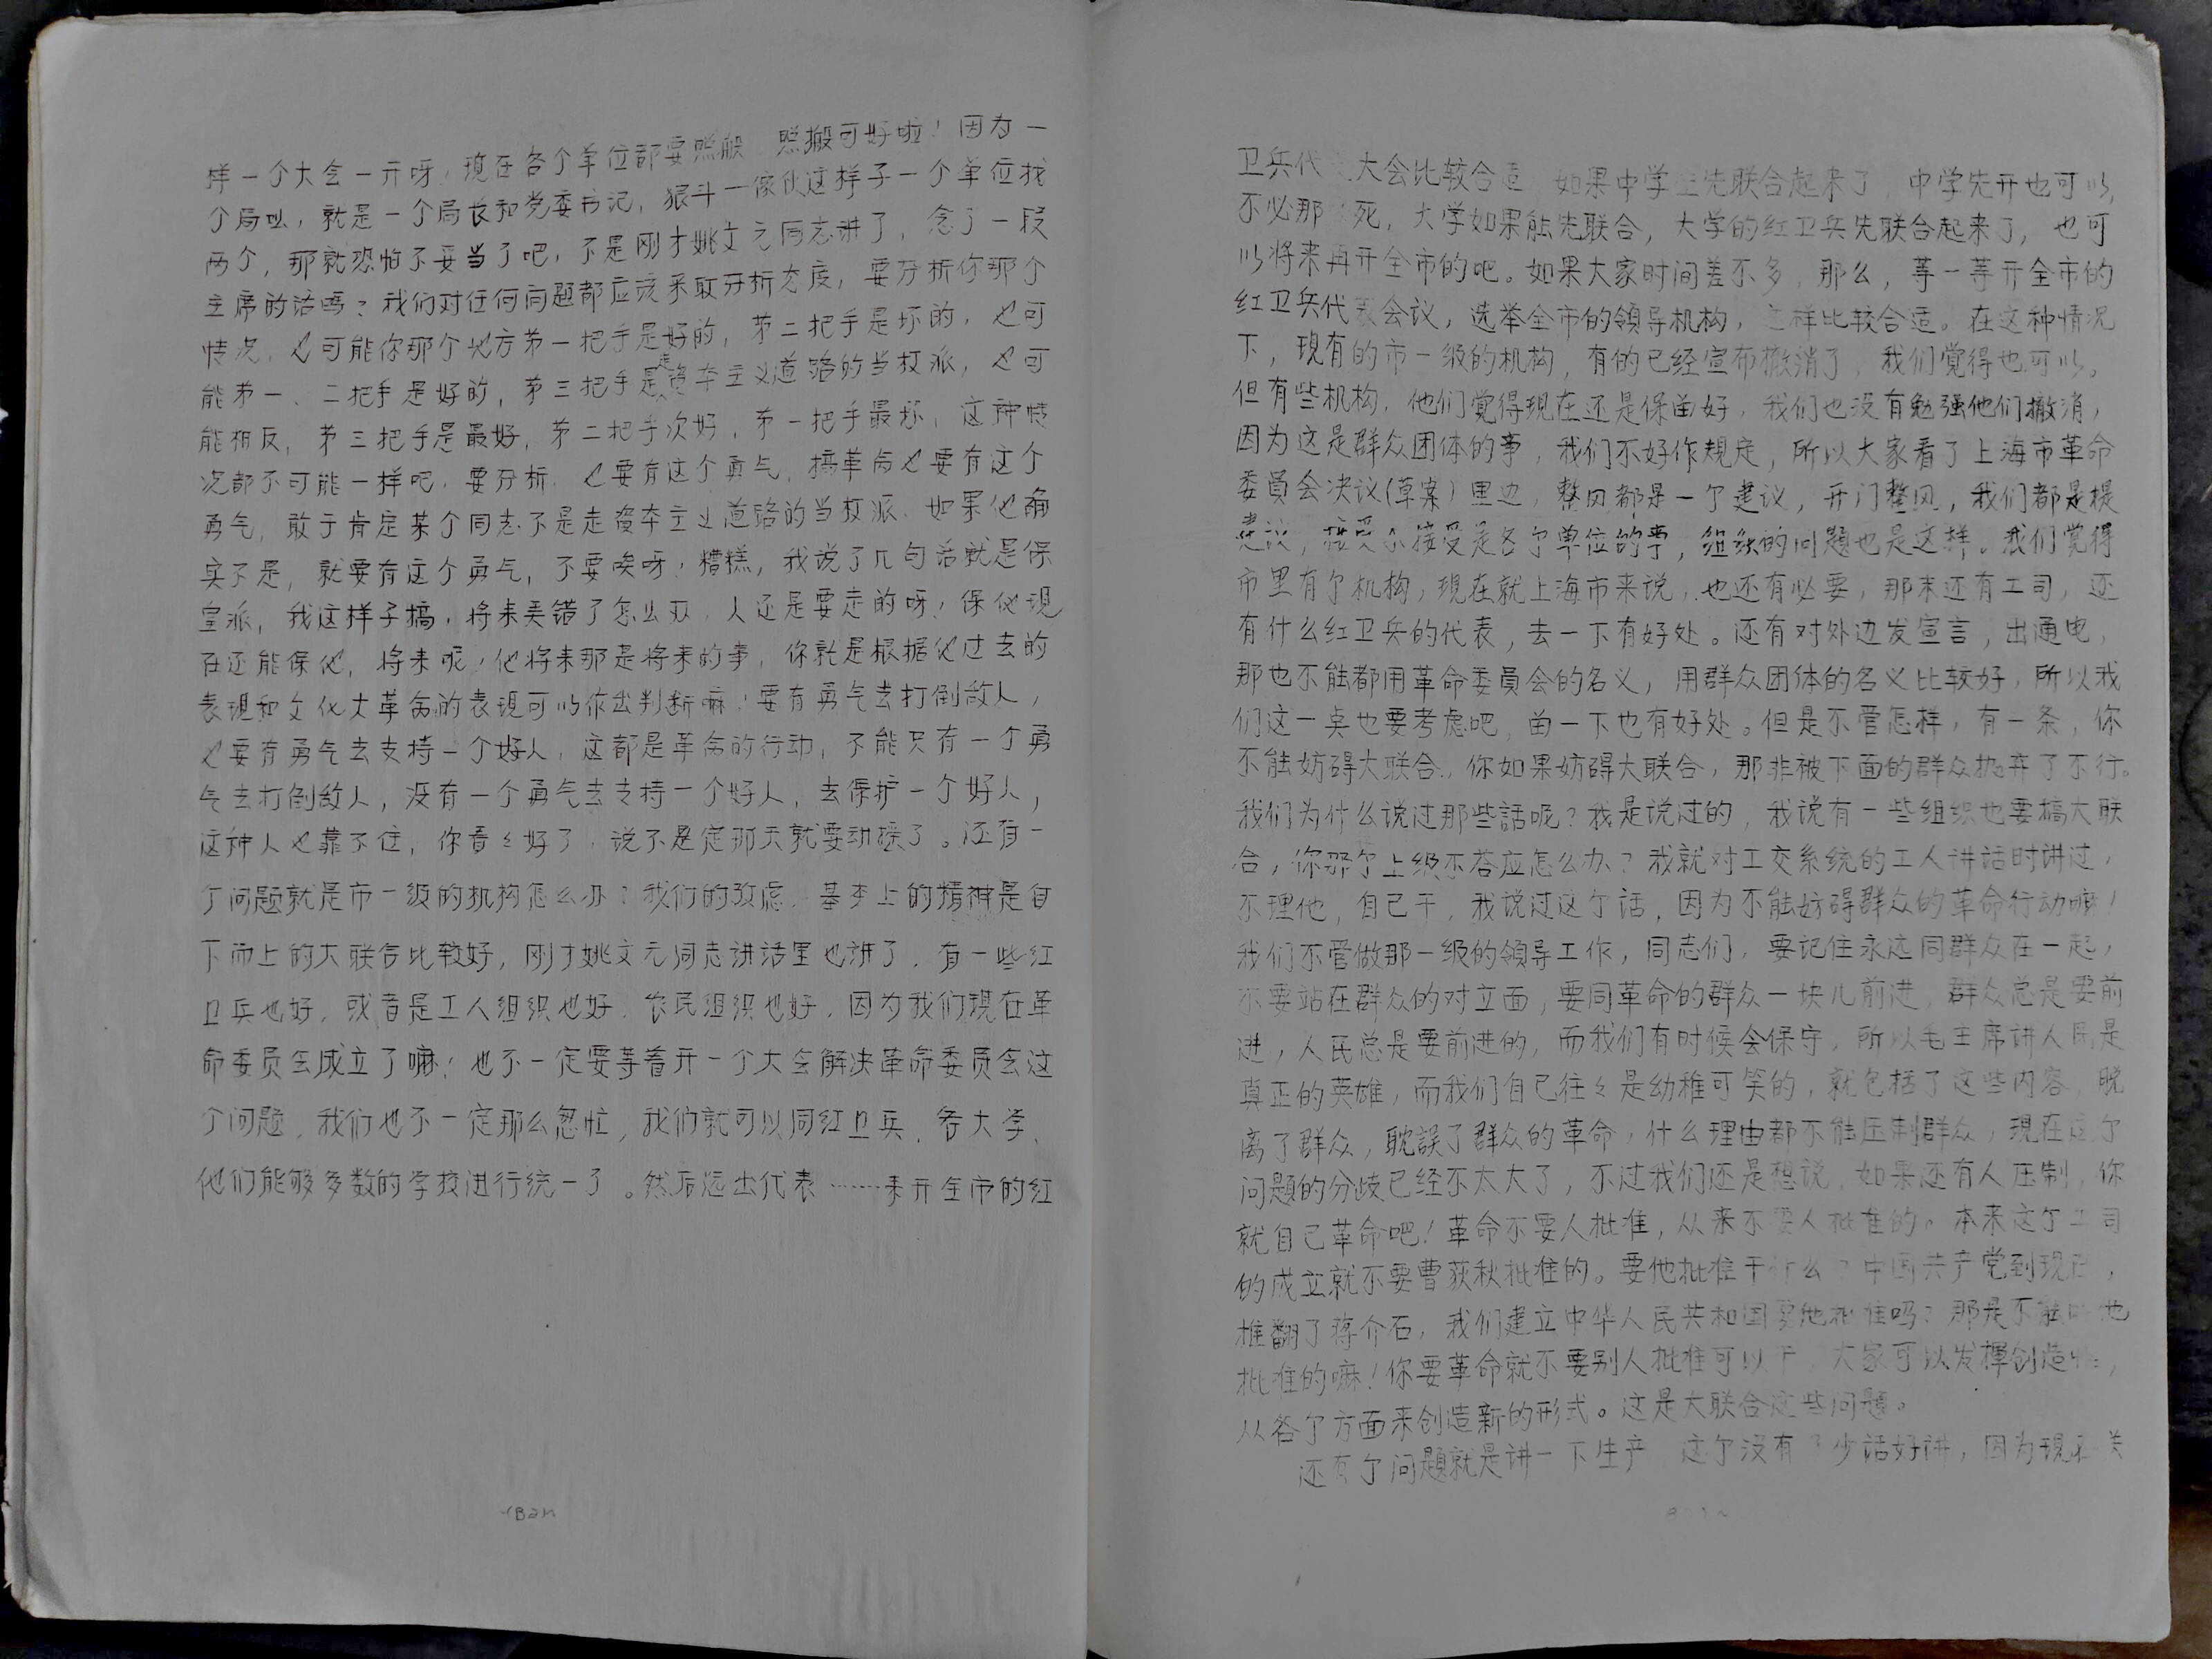 样一个大会一开呀，现在各个单位都要照般 照搬可好啦！因为一
个局吆，就是一个局长和党委书记，狠斗一傢伙这样子一个单位找
两个，那就恐怕不妥当了吧，不是刚才姚文元同志讲了，念了一段
主席的话吗？我们对任何问题都应该采取分析态度，要分析你那个
情况，也可能你那个地方第一把手是好的，第二把手是坏的，也可
能第一、二把手是好的，第三把手是走资本主义道路的当权派，也可
能相反，第三把手是最好，第二把手次好，第一把手最坏，这种情
况都不可能一样吧，要分析，也要有这个勇气，搞革命也要有这个
勇气，敢于肯定某个同志不是走资本主义道路的当权派，如果他确
实不是，就要有这个勇气，不要唉呀！糟糕，我说了几句话就是保
皇派，我这样子搞，将来弄错了怎么办，人还是要走的呀！保他现
在还能保他，将来呢！他将来那是将来的事，你就是根据他过去的
表现和文化大革命的表现可以作出判断嘛！要有勇气去打倒敌人，
也要有勇气去支持一个好人，这都是革命的行动，不能只有一个勇
气去打倒敌人，没有一个勇气去支持一个好人，去保护一个好人，
这种人也靠不住，你看々好了，说不是定那天就要动摇了。还有一
个问题就是市一级的机构怎么办？我们的攷虑，基本上的精神是自
下而上的大联合比较好，刚才姚文元同志讲话里也讲了，有一些红
卫兵也好，或者是工人组织也好，农民组织也好，因为我们现在革
命委员会成立了嘛！也不一定要等着开一个大会解决革命委员会这
个问题，我们也不一定那么忽忙，我们就可以同红卫兵、各大学、
他们能够多数的学校进行统一了。然后选出代表……来开全市的红
卫兵代 大会比较合适 如果中学生先联合起来了，中学先开也可以，
不必那 死，大学如果能先联合，大学的红卫兵先联合起来了，也可
以将来再开全市的吧。如果大家时间差不多，那么，等一等开全市的
红卫兵代表会议，选举全市的領导机构，这样比较合适。在这种情况
下，现有的市一级的机构，有的已经宣布撤消了，我们觉得也可以。
但有些机构，他们觉得现在还是保留好，我们也没有勉强他们撤消，
因为这是群众团体的事，我们不好作规定，所以大家看了上海市革命
委員会决议(草案）里边，整风都是一个建议，开门整风，我们都是提
建议，接受不接受是各个单位的事，组织的问题也是这样。我们觉得
市里有个机构，现在就上海市来说，也还有必要，那末还有工司，还
有什么红卫兵的代表，去一下有好处。还有对外边发宣言，出通电，
那也不能都用革命委員会的名义，用群众团体的名义比较好，所以我
们这一点也要考虑吧，留一下也有好处。但是不管怎样，有一条，你
不能妨碍大联合，你如果妨碍大联合，那非被下面的群众抛弃了不行。
我们为什么说过那些話呢？我是说过的，我说有一些组织也要搞大联
合，你那个上级不答应怎么办？我就对工交系统的工人讲话时讲过，
不理他，自已干，我说过这个话，因为不能妨碍群众的革命行动嘛！
我们不管做那一级的領导工作，同志们，要记住永远同群众在一起，
不要站在群众的对立面，要同革命的群众一块儿前进，群众总是要前
进，人民总是要前进的，而我们有时候会保守，所以毛主席讲人民是
真正的英雄，而我们自已往々是幼稚可笑的，就包括了这些内容，脱
离了群众，耽誤了群众的革命，什么理由都不能压制群众，现在这个
问题的分歧已经不太大了，不过我们还是想说，如果还有人压制，你
就自己革命吧！革命不要人批准，从来不要人批准的。本来这个工司
的成立就不要曹荻秋批准的。要他批准干什么？中国共产党到现在，
推翻了蒋介石，我们建立中华人民共和国要他批准吗？那是不能 他
批准的嘛！你要革命就不要别人批准可以干，大家可以发揮创造性，
从各个方面来创造新的形式。这是大联合这些问题。
还有个问題就是讲一下生产 这个没有 少话好讲，因为现